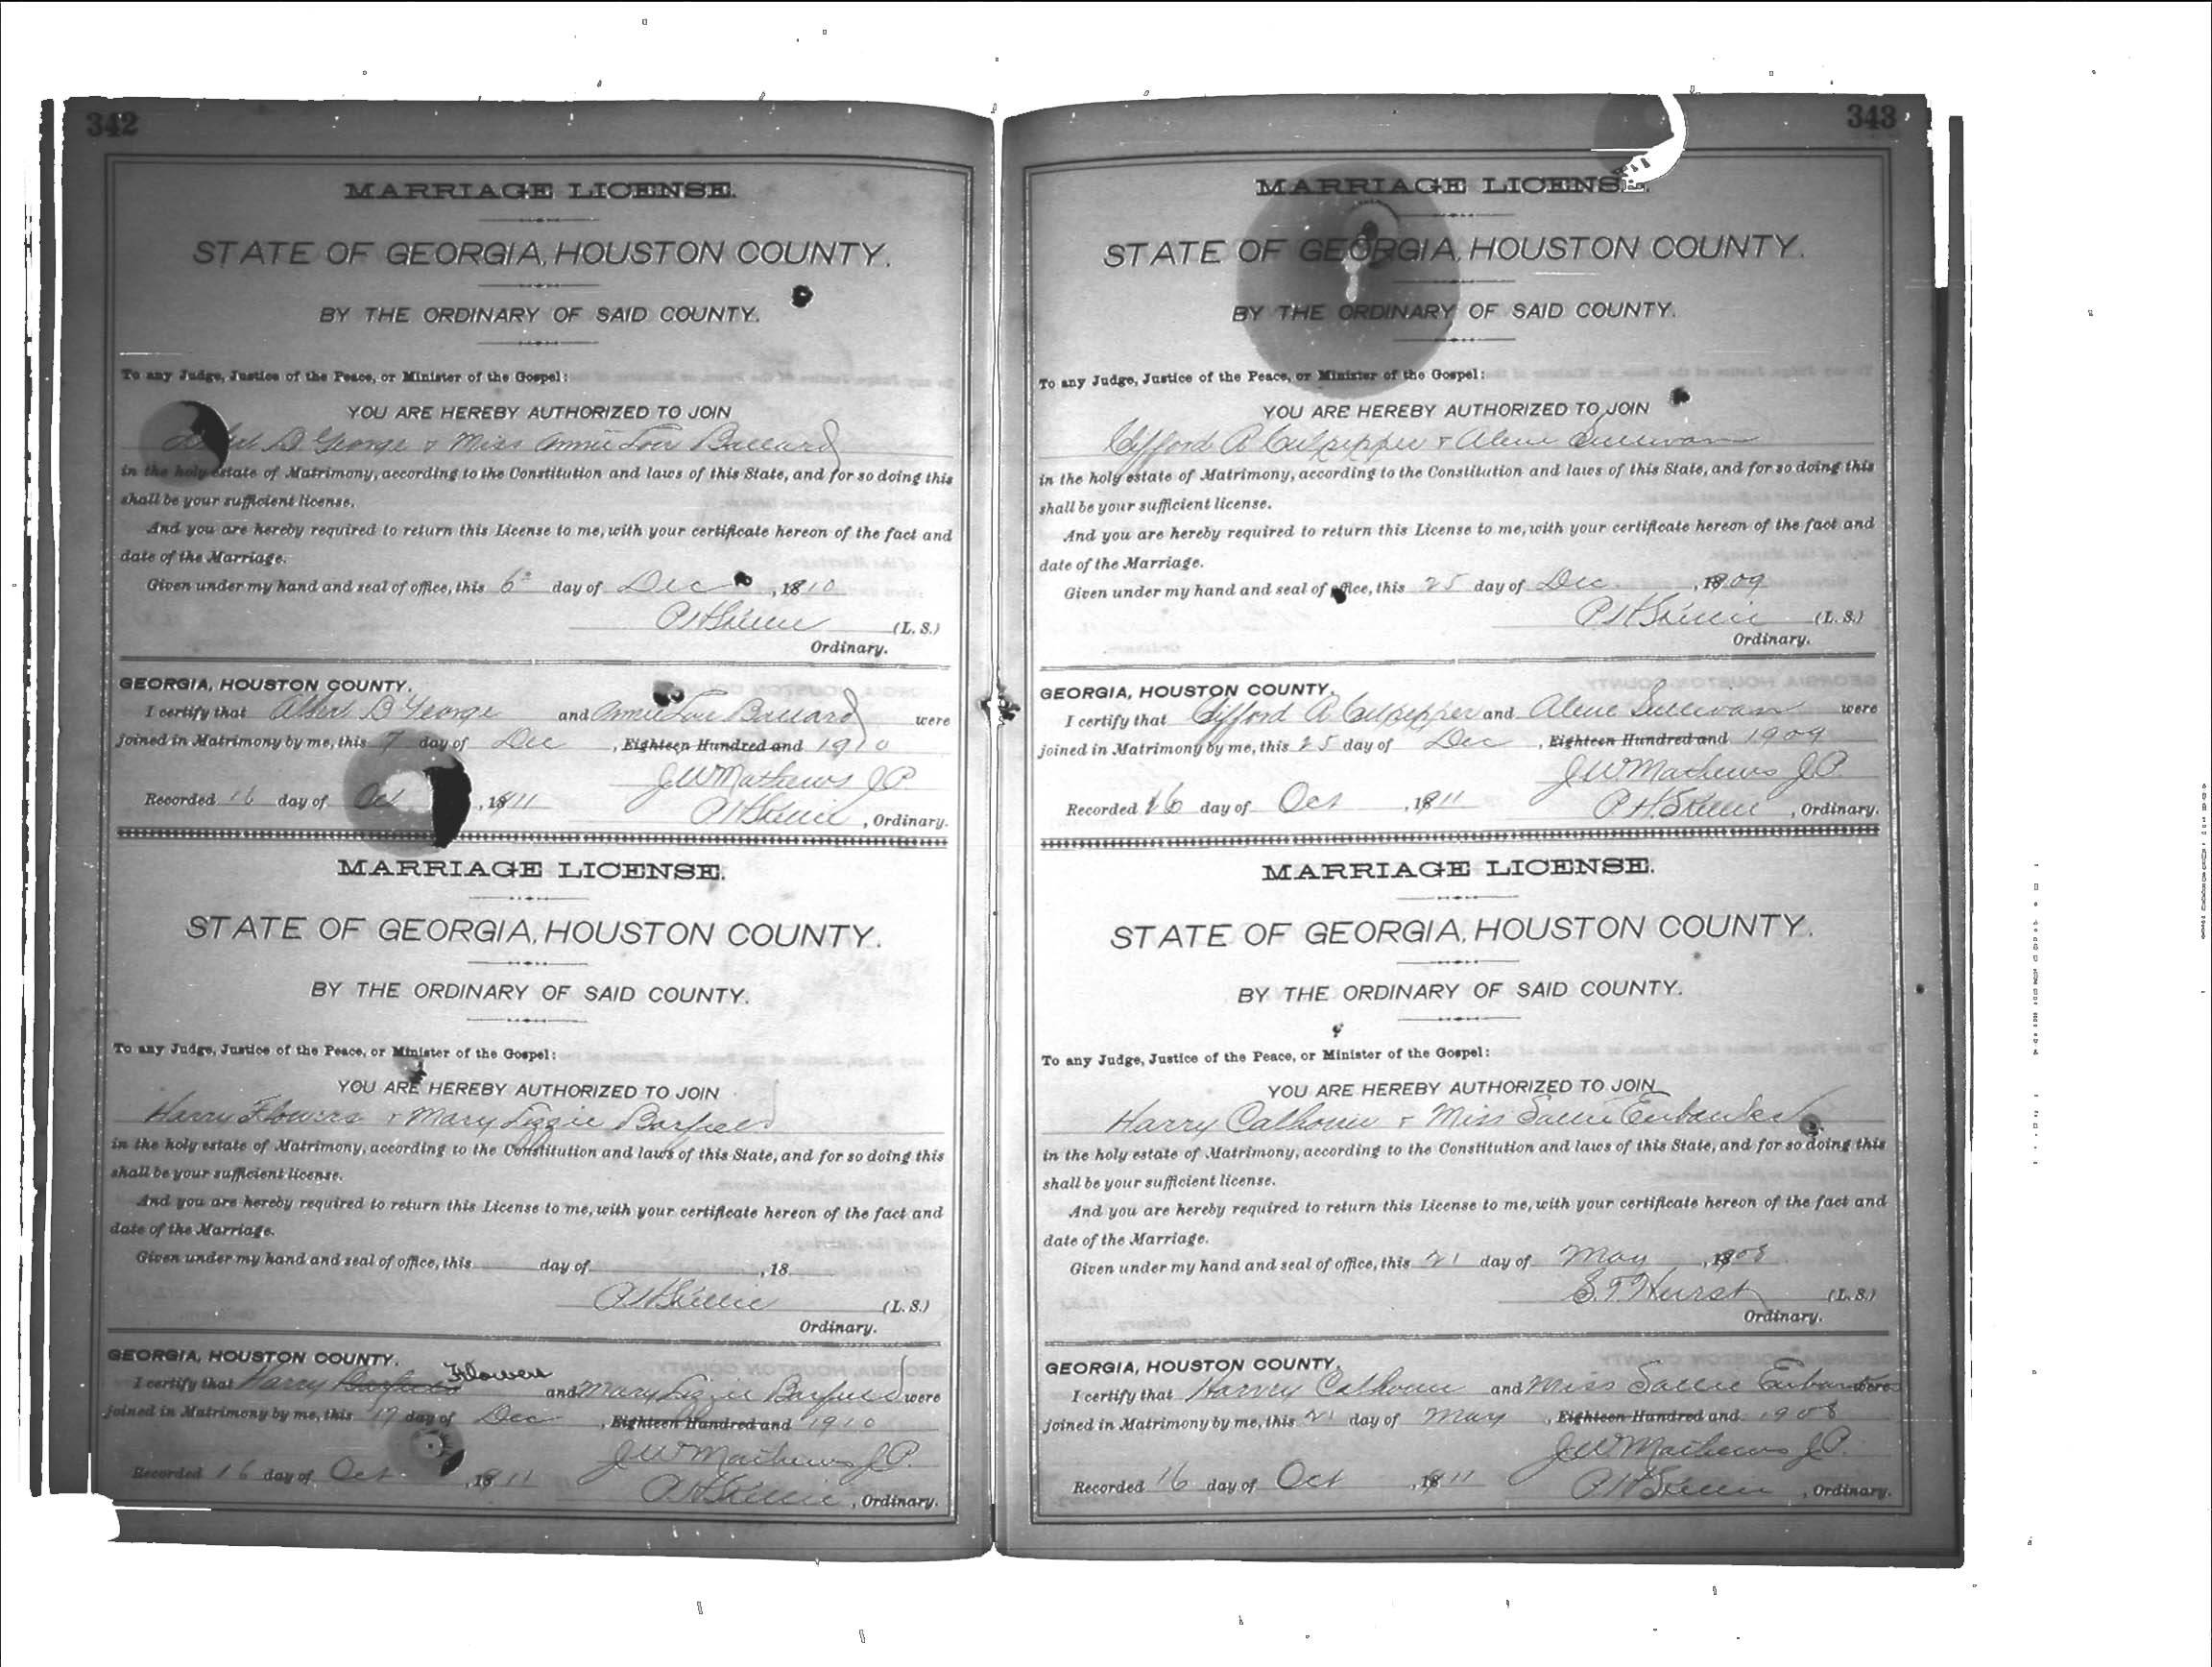 342
MARRIAGE LICENSE.
STATE OF GEORGIA, HOUSTON COUNTY.
BY THE ORDINARY OF SAID COUNTY.
To any Judge, Justice of the Peace, or Minister of the Gospel:
YOU ARE HEREBY AUTHORIZED TO JOIN
George & Miss Annie Lou Ballard
in the holy estate of Matrimony, according to the Constitution and laws of this State, and for so doing this
shall be your sufficient license.
And you are hereby required to return this License to me, with your certificate hereon of the fact and
date of the Marriage.
Given under my hand and seal of office, this 6 day of Dec , 1910
(L. S.)
Ordinary.
GEORGIA, HOUSTON COUNTY.
I certify that Albert B George and Annie Lou Ballard were
joined in Matrimony by me, this 7 day of Dec , Eighteen Hundred and 1910
J W Mathews J P.
Recorded 16 day of Oct , 1911
, Ordinary.
MARRIAGE LICENSE.
STATE OF GEORGIA, HOUSTON COUNTY.
BY THE ORDINARY OF SAID COUNTY.
To any Judge, Justice of the Peace, or Minister of the Gospel:
YOU ARE HEREBY AUTHORIZED TO JOIN
Harry Flowers & Mary Lizzie Barfield
in the holy estate of Matrimony, according to the Constitution and laws of this State, and for so doing this
shall be your sufficient license.
And you are hereby required to return this License to me, with your certificate hereon of the fact and
date of the Marriage.
Given under my hand and seal of office, this day of , 18
(L. S.)
Ordinary.
GEORGIA, HOUSTON COUNTY.
I certify that Harry Barfield Flowers and Mary Lizzie Barfield were
joined in Matrimony by me, this 17 day of Dec , Eighteen Hundred and 1910
J W Mathews J P.
Recorded 16 day of Oct. , 1911
, Ordinary.
343
MARRIAGE LICENSE.
STATE OF GEORGIA, HOUSTON COUNTY.
BY THE ORDINARY OF SAID COUNTY.
To any Judge, Justice of the Peace, or Minister of the Gospel:
YOU ARE HEREBY AUTHORIZED TO JOIN
Clifford A Culpepper & Alene Sullivan
in the holy estate of Matrimony, according to the Constitution and laws of this State, and for so doing this
shall be your sufficient license.
And you are hereby required to return this License to me, with your certificate hereon of the fact and
date of the Marriage.
Given under my hand and seal of office, this 25 day of Dec. , 1909
(L. S.)
Ordinary.
GEORGIA, HOUSTON COUNTY.
I certify that Clifford A Culpepper and Alene Sullivan were
joined in Matrimony by me, this 25 day of Dec , Eighteen Hundred and 1909
J. W. Mathews J. P.
Recorded 16 day of Oct , 1911
, Ordinary.
MARRIAGE LICENSE.
STATE OF GEORGIA, HOUSTON COUNTY.
BY THE ORDINARY OF SAID COUNTY.
To any Judge, Justice of the Peace, or Minister of the Gospel:
YOU ARE HEREBY AUTHORIZED TO JOIN
Harry Calhoun & Miss Sallie Eubanks
in the holy estate of Matrimony, according to the Constitution and laws of this State, and for so doing this
shall be your sufficient license.
And you are hereby required to return this License to me, with your certificate hereon of the fact and
date of the Marriage.
Given under my hand and seal of office, this 21 day of May , 1908
S. T. Hurst (L. S.)
Ordinary.
GEORGIA, HOUSTON COUNTY.
I certify that Harvey Calhoun and Miss Sallie Eubanks were
joined in Matrimony by me, this 21 day of May , Eighteen Hundred and 1908
J W Mathews J. P.
Recorded 16 day of Oct , 1911
, Ordinary.